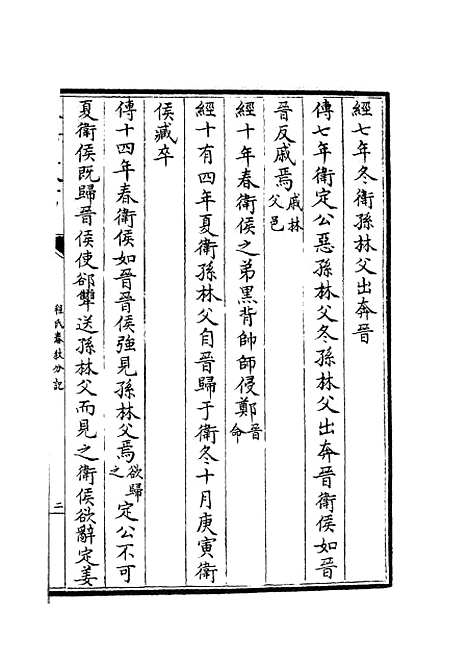 經七年冬衛孫林父出奔晉
傳七年衛定公惡孫林父冬孫林父出奔晉衛侯如晉
晉反戚焉戚林父邑
經十年春衛侯之弟黑背帥師侵鄭晉命
經十有四年夏衛孫林父自晉歸于衛冬十月庚寅衛
侯臧卒
傳十四年春衛侯如晉晉侯強見孫林父焉欲歸之定公不可
夏衛侯既歸晉侯使郤犫送孫林父而見之衛侯欲辭定姜
程氏春秋分記
二